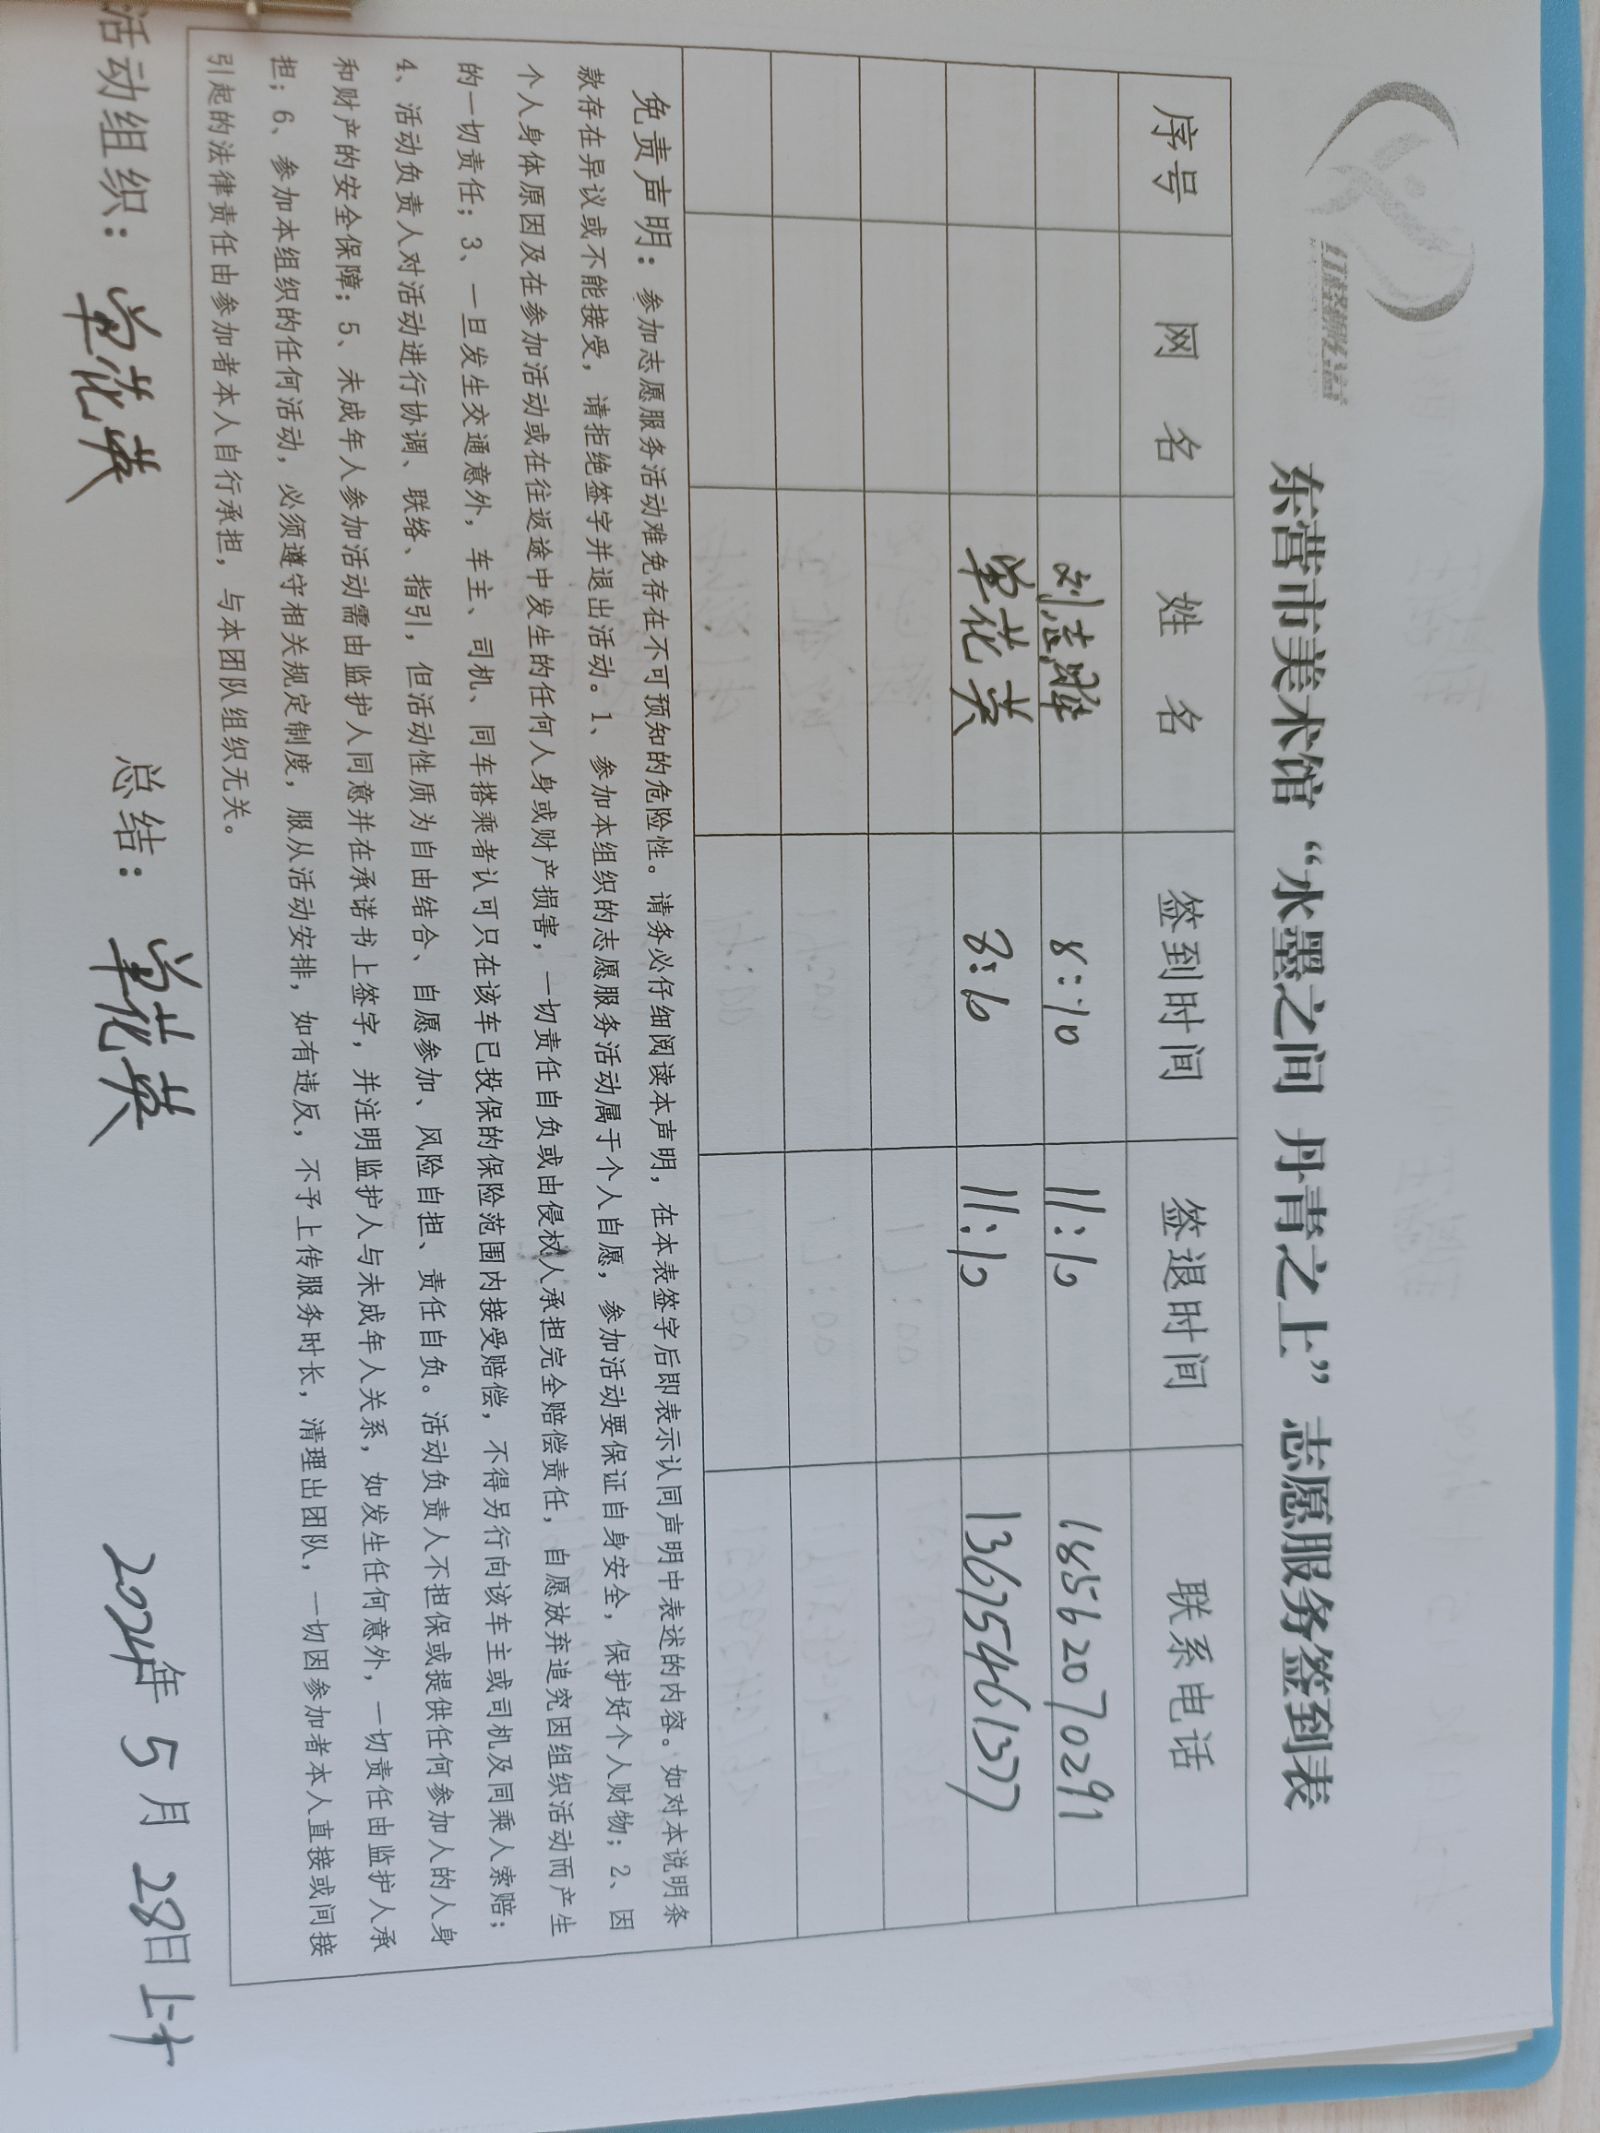 东营市美术馆“水墨之间 丹青之上”志愿服务签到表
序号 网 名 姓 名 签到时间 签退时间 联系电话
刘志耀 8:10 11:10 18562070291
单花英 8:10 11:10 13675461377
免责声明：参加志愿服务活动难免存在不可预知的危险性。请务必仔细阅读本声明，在本表签字后即表示认同声明中表述的内容。如对本说明条
款存在异议或不能接受，请拒绝签字并退出活动。1、参加本组织的志愿服务活动属于个人自愿，参加活动要保证自身安全，保护好个人财物；2、因
个人身体原因及在参加活动或在往返途中发生的任何人身或财产损害，一切责任自负或由侵权人承担完全赔偿责任，自愿放弃追究因组织活动而产生
的一切责任；3、一旦发生交通意外，车主、司机、同车搭乘者认可只在该车已投保的保险范围内接受赔偿，不得另行向该车主或司机及同乘人索赔；
4、活动负责人对活动进行协调、联络、指引，但活动性质为自由结合、自愿参加、风险自担、责任自负。活动负责人不担保或提供任何参加人的人身
和财产的安全保障；5、未成年人参加活动需由监护人同意并在承诺书上签字，并注明监护人与未成年人关系，如发生任何意外，一切责任由监护人承
担；6、参加本组织的任何活动，必须遵守相关规定制度，服从活动安排，如有违反，不予上传服务时长，清理出团队，一切因参加者本人直接或间接
引起的法律责任由参加者本人自行承担，与本团队组织无关。
活动组织：单花英 总结：单花英 2024年 5月 28日上午